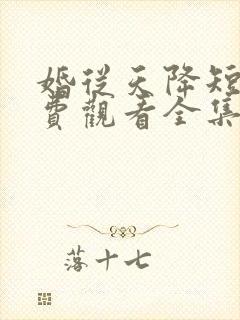 婚從天降短
費觀看全集
落十七